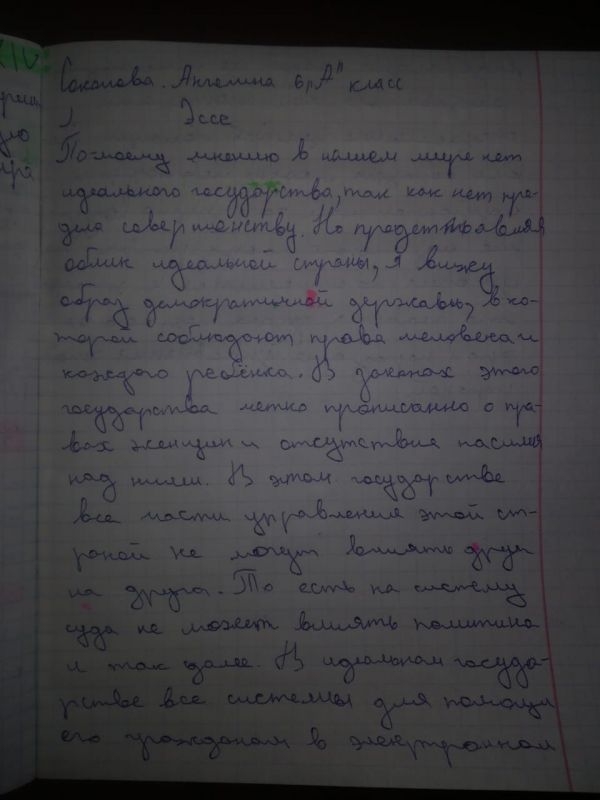 Соколова. Ангелина 6 "А" класс
1. Эссе
По моему мнению в нашем мире нет
идеального государства, так как нет пре-
дела совершенству. Но представляя
облик идеальной страны, я вижу
образ демократичной державы, в ко-
торой соблюдают права человека и
каждого ребёнка. В законах этого
государства четко прописанно о пра-
вах женщин и отсутствие насилия
над ними. В этом государстве
все части управление этой ст-
раной не могут влиять друг
на друга. То есть на систему
суда не может влиять политика
и так далее. В идеальном госуда-
рстве все системы для помощи
его гражданам в электронном